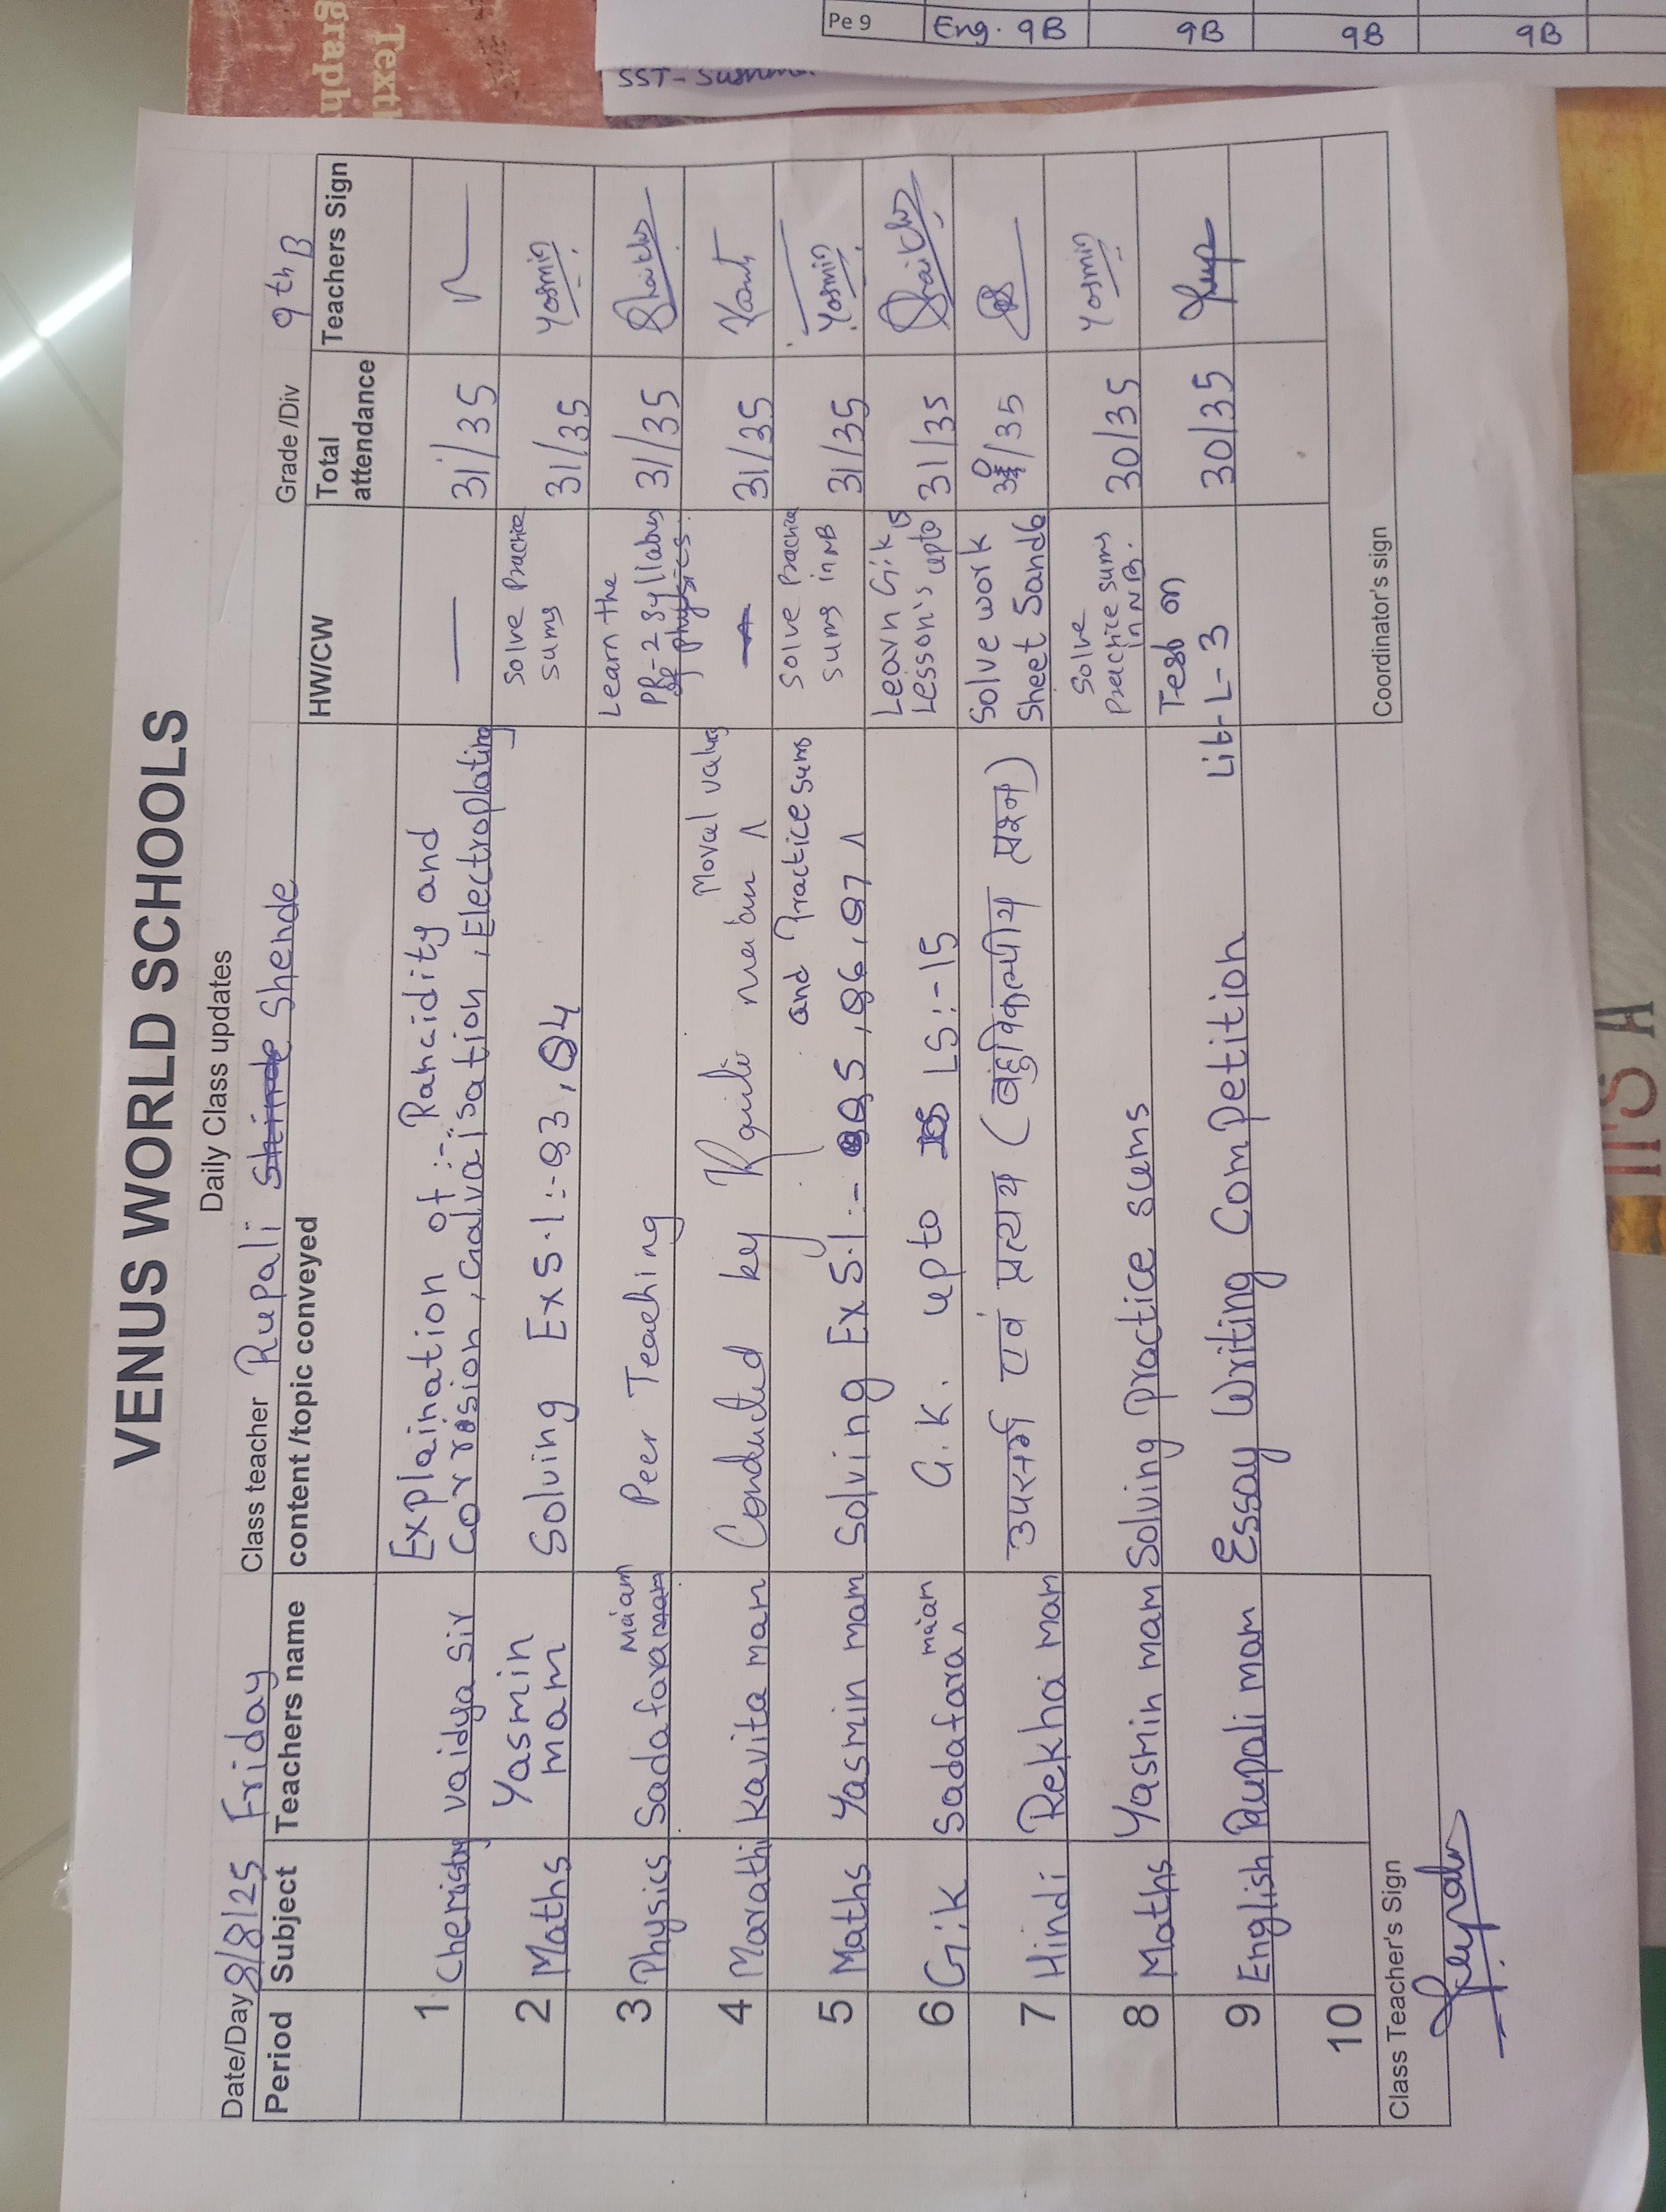 VENUS WORLD SCHOOLS
Daily Class updates
Date/Day 8/8/25 Friday Class teacher Rupali Shende Grade /Div 9th B
Period Subject Teachers name content /topic conveyed HW/CW Total attendance Teachers Sign
1 Chemistry Vaidya Sir Explaination of :- Rancidity and
Corrosion, Galvalisation, Electroplating — 31/35
2 Maths Yasmin mam Solving Ex 5.1 :- Q3, Q4 Solve Practice sums 31/35 Yasmin
3 Physics Sadafara Ma'am Peer Teaching Learn the PR-2 Syllabus physics. 31/35 Shaikh
4 Marathi Kavita mam Conducted key ma'am Moral value 31/35
5 Maths Yasmin mam Solving Ex 5.1 :- Q5, Q6, Q7 and Practice sums Solve Practice sums in NB 31/35 Yasmin
6 G.K Sadafara ma'am G.K. upto LS:-15 Learn G.K Lesson's upto 15 31/35 Shaikh
7 Hindi Rekha mam उपसर्ग एवं प्रत्यय (बहुविकल्पीय प्रश्न) Solve work Sheet 5and6 30/35
8 Maths Yasmin mam Solving Practice sums Solve Practice sums in NB. 30/35 Yasmin
9 English Rupali mam Essay Writing Competition Test on Lit- L-3 30/35
10
Class Teacher's Sign Coordinator's sign
Pe 9 Eng. 9B 9B 9B 9B
SST-
Text
graph
ITS A